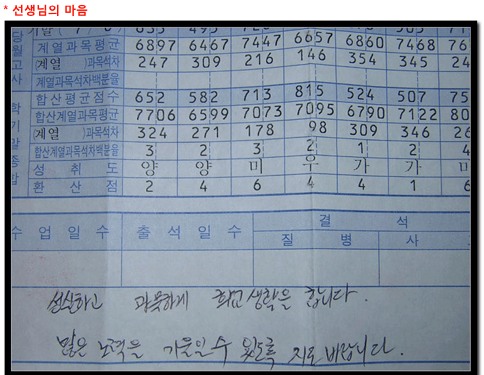 * 선생님의 마음
계열과목평균 6897 6467 7447 6657 6860 7468 76
(계열 )과목석차 247 309 216 146 354 345 24
계열과목석차백분율
합산평균점수 652 582 713 815 524 507 75
합산계열과목평균 7706 6599 7073 7095 6790 7122 80
(계열 )과목석차 324 271 178 98 309 346 26
합산계열과목석차백분율 3 2 3 2 1 2 4
성취도 양 양 미 우 가 가 미
환산점 2 4 6 4 4 1 6
수업일수 출석일수 결 석
질 병 사
성실하고 과묵하게 학교생활을 합니다.
많은 노력을 기울일 수 있도록 지도 바랍니다.